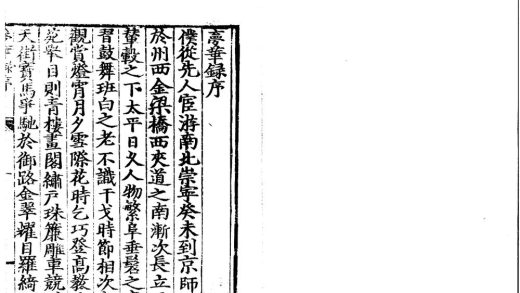 夢華録序
僕從先人宦游南北崇寧癸未到京師
於州西金梁橋西夾道之南漸次長立
輦轂之下太平日久人物繁阜垂髫之
習鼓舞班白之老不識干戈時節相次
觀賞燈宵月夕雪際花時乞巧登高教
苑舉目則青樓畫閣繡戶珠簾雕車競
天街寳馬爭馳於御路金翠耀目羅綺